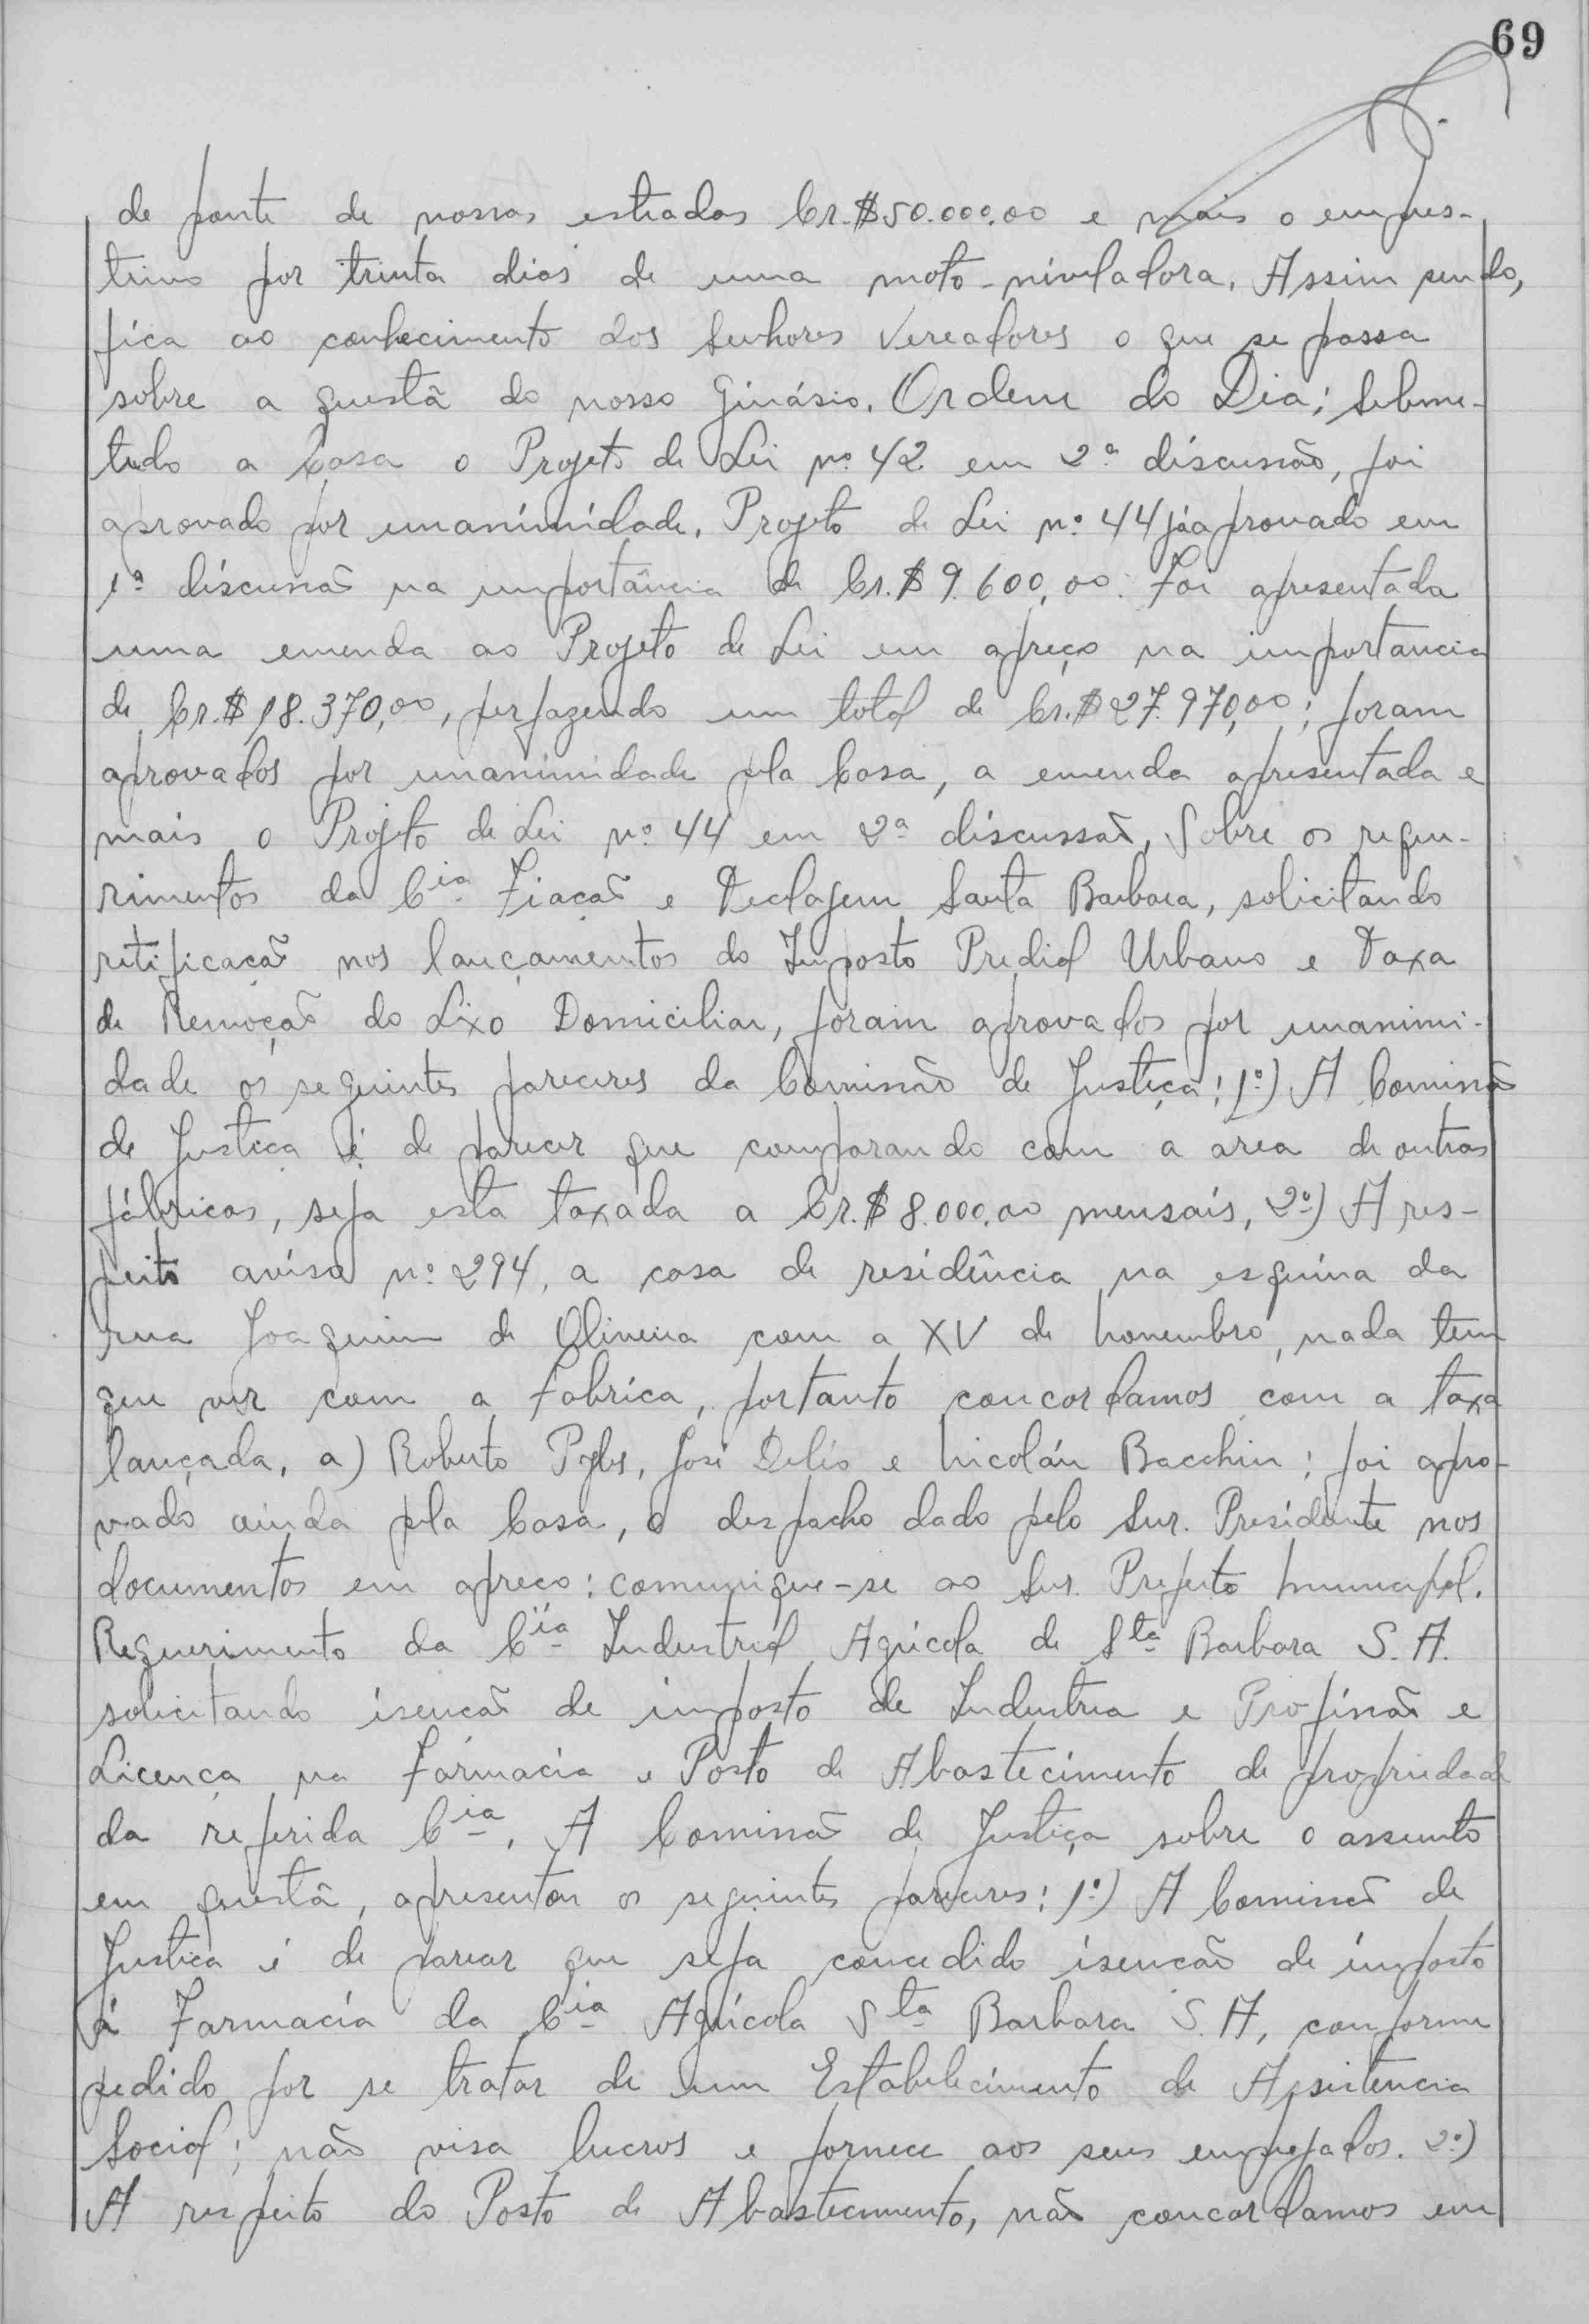 69
de ponte de nossas estradas Cr.$50.000,00 e mais o empres-
timo por trinta dias de uma moto-niveladora. Assim sendo,
fica ao conhecimento dos Senhores Vereadores o que se passa
sobre a questã do nosso Ginásio. Ordem do Dia: Subme-
tudo a Casa o Projeto de Lei nº 42 em 2ª discussão, foi
aprovado por unanimidade. Projeto de Lei nº 44 já aprovado em
1ª discussão na importância de Cr.$ 9.600,00. Foi apresentada
uma emenda ao Projeto de Lei em apreço na importancia
de Cr.$ 18.370,00, perfazendo um total de Cr.$ 27.970,00; foram
aprovados por unanimidade pela Casa, a emenda apresentada e
mais o Projeto de Lei nº 44 em 2ª discussão, Sobre os reque-
rimentos da Cia. Fiação e Teclagem Santa Barbara, solicitando
retificacão nos lançamentos do Imposto Predial Urbano e Taxa
de Remoção do Lixo Domiciliar, foram aprovados por unanimi-
dade os seguintes pareceres da Comissão de Justiça: 1º) A Comissão
de Justiça é de parecer que comparando com a area de outras
fábricas, seja esta taxada a Cr.$ 8.000,00 mensais, 2º) A res-
peito aviso nº 294, a casa de residência na esquina da
rua Joaquim de Oliveira com a XV de novembro, nada tem
que ver com a Fabrica, portanto concordamos com a taxa
lançada, a) Roberto Pyles, José Delío e Nicoláu Bacchin; foi apro-
vado ainda pela Casa, o despacho dado pelo Snr. Presidente nos
documentos em apreco: comunique-se ao Snr. Prefeito Municipal.
Requerimento da Cia Industrial Agrícola de Sta Barbara S.A.
solicitando isencão de imposto de Industria e Profissão e
Licença na Fármacia e Posto de Abastecimento de propriedade
da referida Cia. A Comissão de Justiça sobre o assunto
em questã, apresentou os seguintes pareceres: 1º) A Comissão de
Justiça é de parecer que seja concedido isencão de imposto
á Farmacía da Cia Agrícola Sta Barbara S.A, conforme
pedido por se tratar de um Estabelecimento de Assistencia
Social; não visa lucros e fornece aos seus empregados. 2º)
A respeito do Posto de Abastecimento, não concordamos em